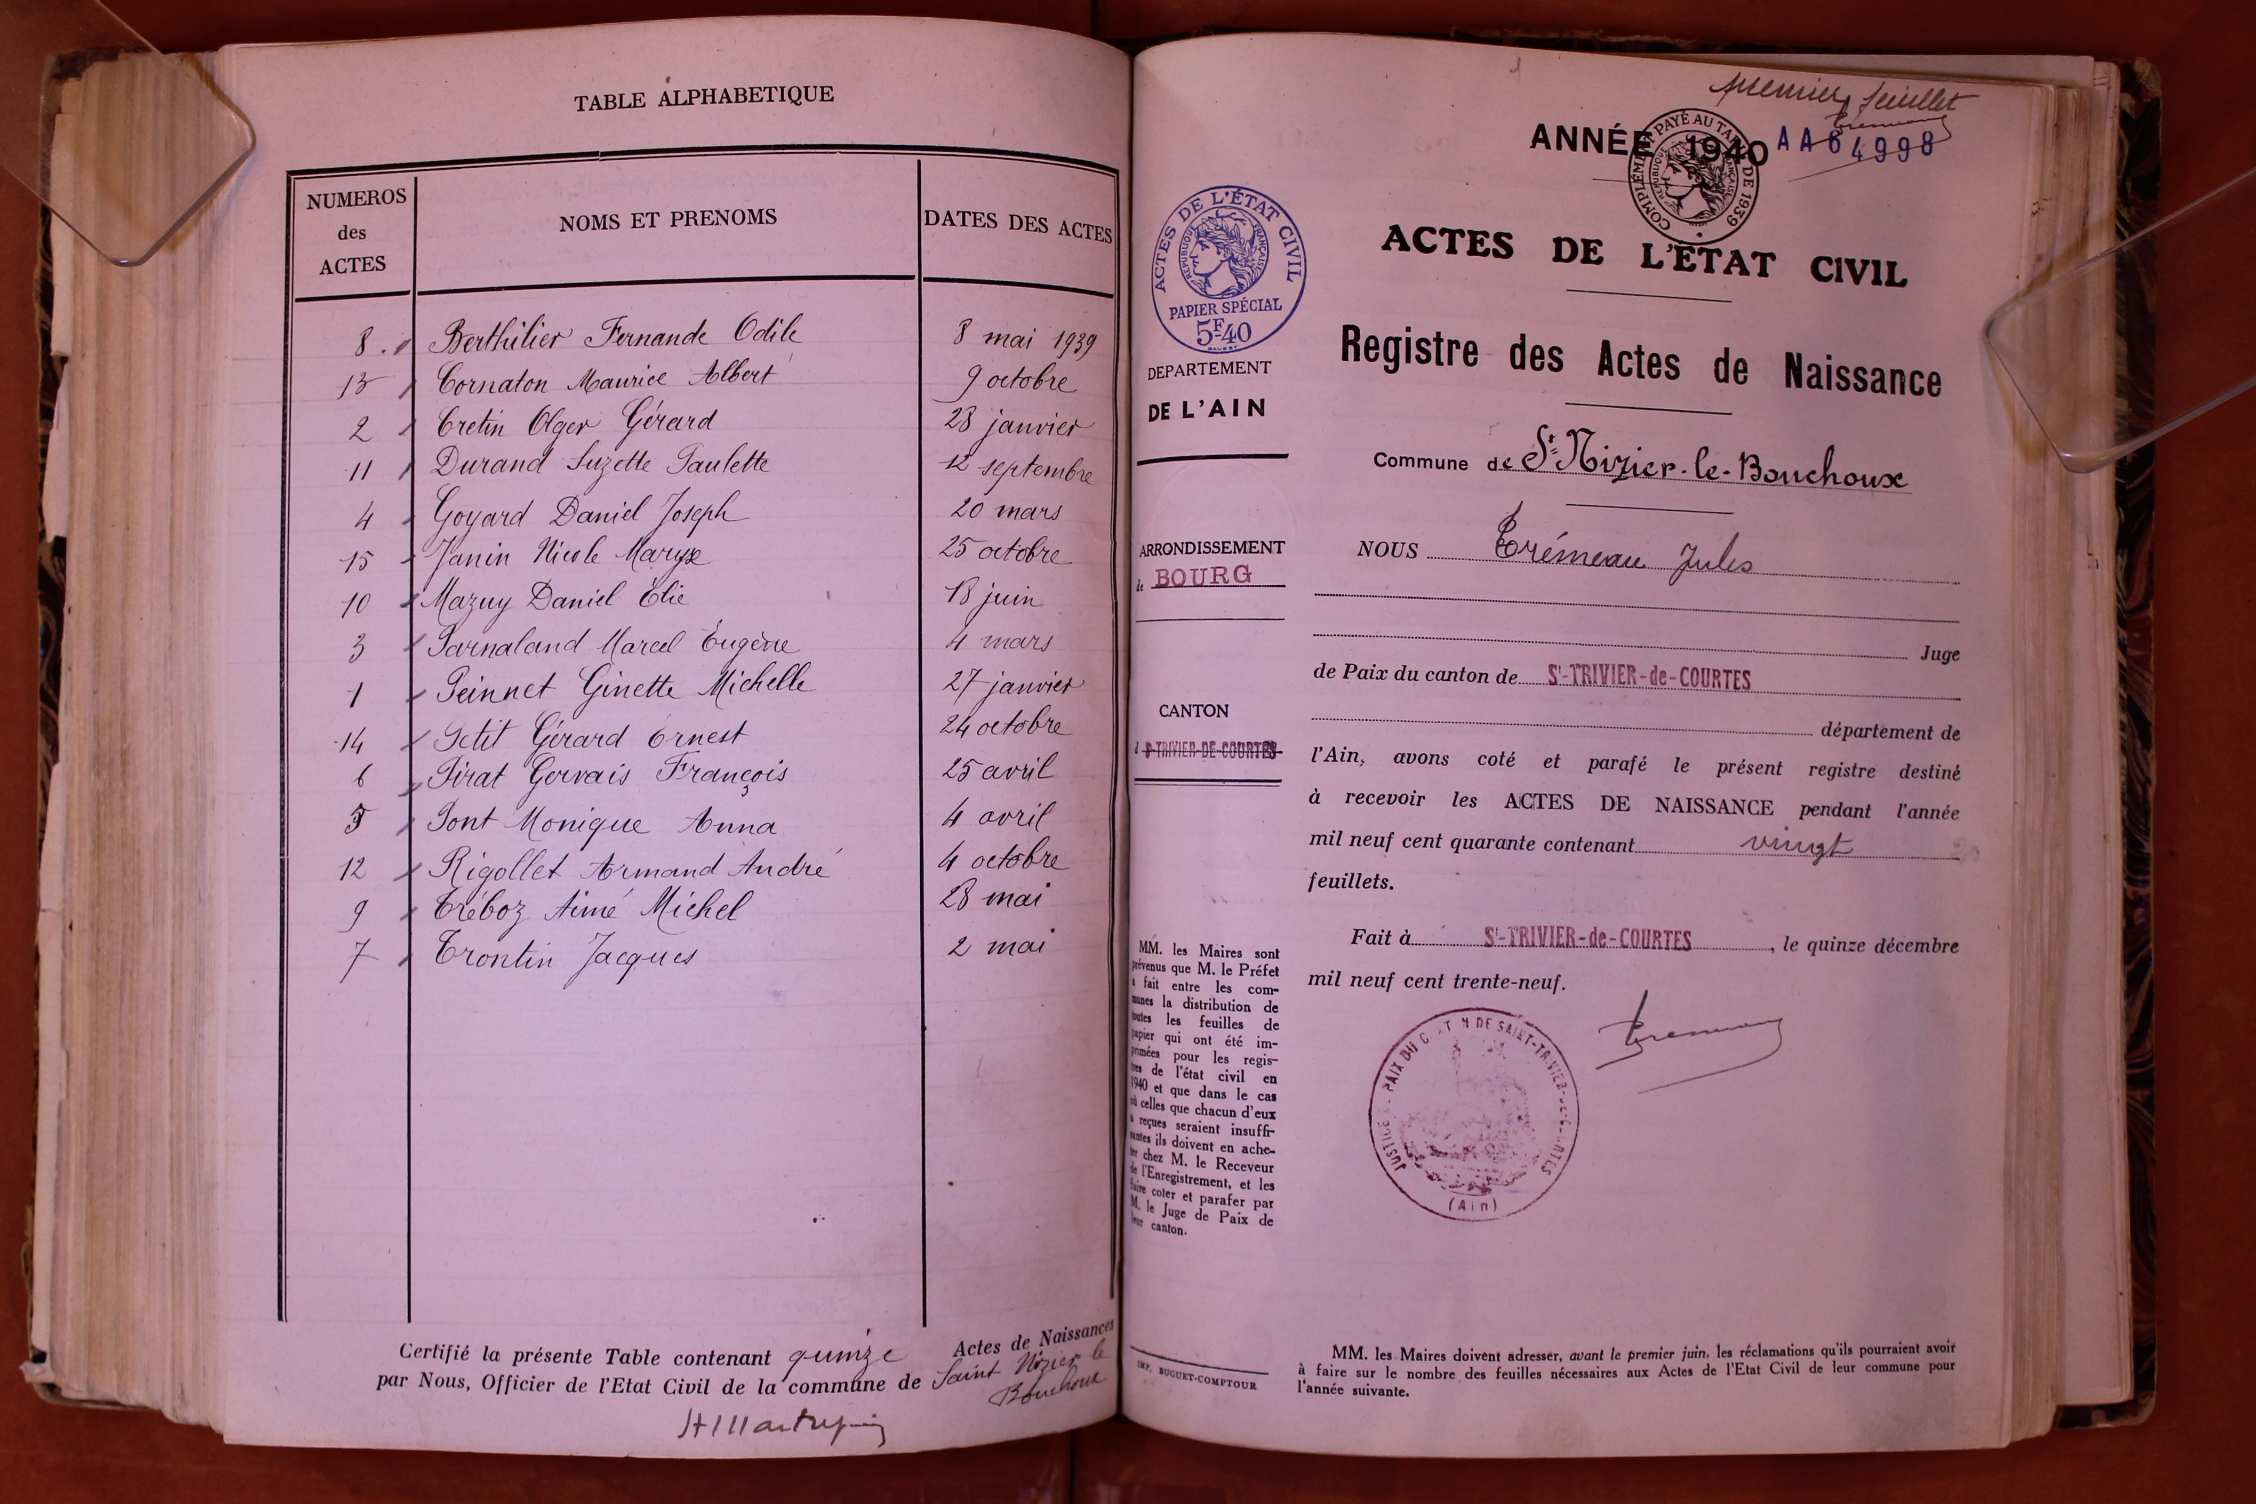 TABLE ALPHABETIQUE
NUMEROS des ACTES
NOMS ET PRENOMS
DATES DES ACTES
8 Berthilier Fernande Odile 8 mai 1939
13 Cornaton Maurice Albert 9 octobre
2 Cretin Olger Gérard 28 janvier
11 Durand Suzette Paulette 12 septembre
4 Goyard Daniel Joseph 20 mars
15 Janin Nicole Maryse 25 octobre
10 Mazuy Daniel Élie 18 juin
3 Parnaland Marcel Eugène 4 mars
1 Peinnet Ginette Michelle 27 janvier
14 Petit Gérard Ernest 24 octobre
6 Pirat Gervais François 25 avril
5 Pont Monique Anna 4 avril
12 Rigollet Armand André 4 octobre
9 Tréboz Aimé Michel 28 mai
7 Trontin Jacques 2 mai
Certifié la présente Table contenant quinze Actes de Naissances
par Nous, Officier de l'Etat Civil de la commune de Saint Nizier le
Bouchoux
premier feuillet
ANNÉE 1940
AA64998
COMPLÉMENT PAYÉ AU TARIF DE 1939
RÉPUBLIQUE FRANÇAISE
ACTES DE L'ÉTAT CIVIL
RÉPUBLIQUE FRANÇAISE
PAPIER SPÉCIAL
5F40
DEPARTEMENT
DE L'AIN
ARRONDISSEMENT
de BOURG
CANTON
St-TRIVIER-DE-COURTES
MM. les Maires sont
prévenus que M. le Préfet
a fait entre les com-
munes la distribution de
toutes les feuilles de
papier qui ont été im-
primées pour les regis-
tres de l'état civil en
1940 et que dans le cas
où celles que chacun d'eux
a reçues seraient insuffi-
santes ils doivent en ache-
ter chez M. le Receveur
de l'Enregistrement, et les
faire coter et parafer par
M. le Juge de Paix de
leur canton.
IMP. BUGUET-COMPTOUR
ACTES DE L'ÉTAT CIVIL
Registre des Actes de Naissance
Commune de St Nizier-le-Bouchoux
NOUS Trémeau Jules
Juge
de Paix du canton de St-TRIVIER-de-COURTES
département de
l'Ain, avons coté et parafé le présent registre destiné
à recevoir les ACTES DE NAISSANCE pendant l'année
mil neuf cent quarante contenant vingt 20
feuillets.
Fait à St-TRIVIER-de-COURTES, le quinze décembre
mil neuf cent trente-neuf.
JUSTICE DE PAIX DU CANTON DE SAINT-TRIVIER-DE-COURTES
(Ain)
MM. les Maires doivent adresser, avant le premier juin, les réclamations qu'ils pourraient avoir
à faire sur le nombre des feuilles nécessaires aux Actes de l'Etat Civil de leur commune pour
l'année suivante.